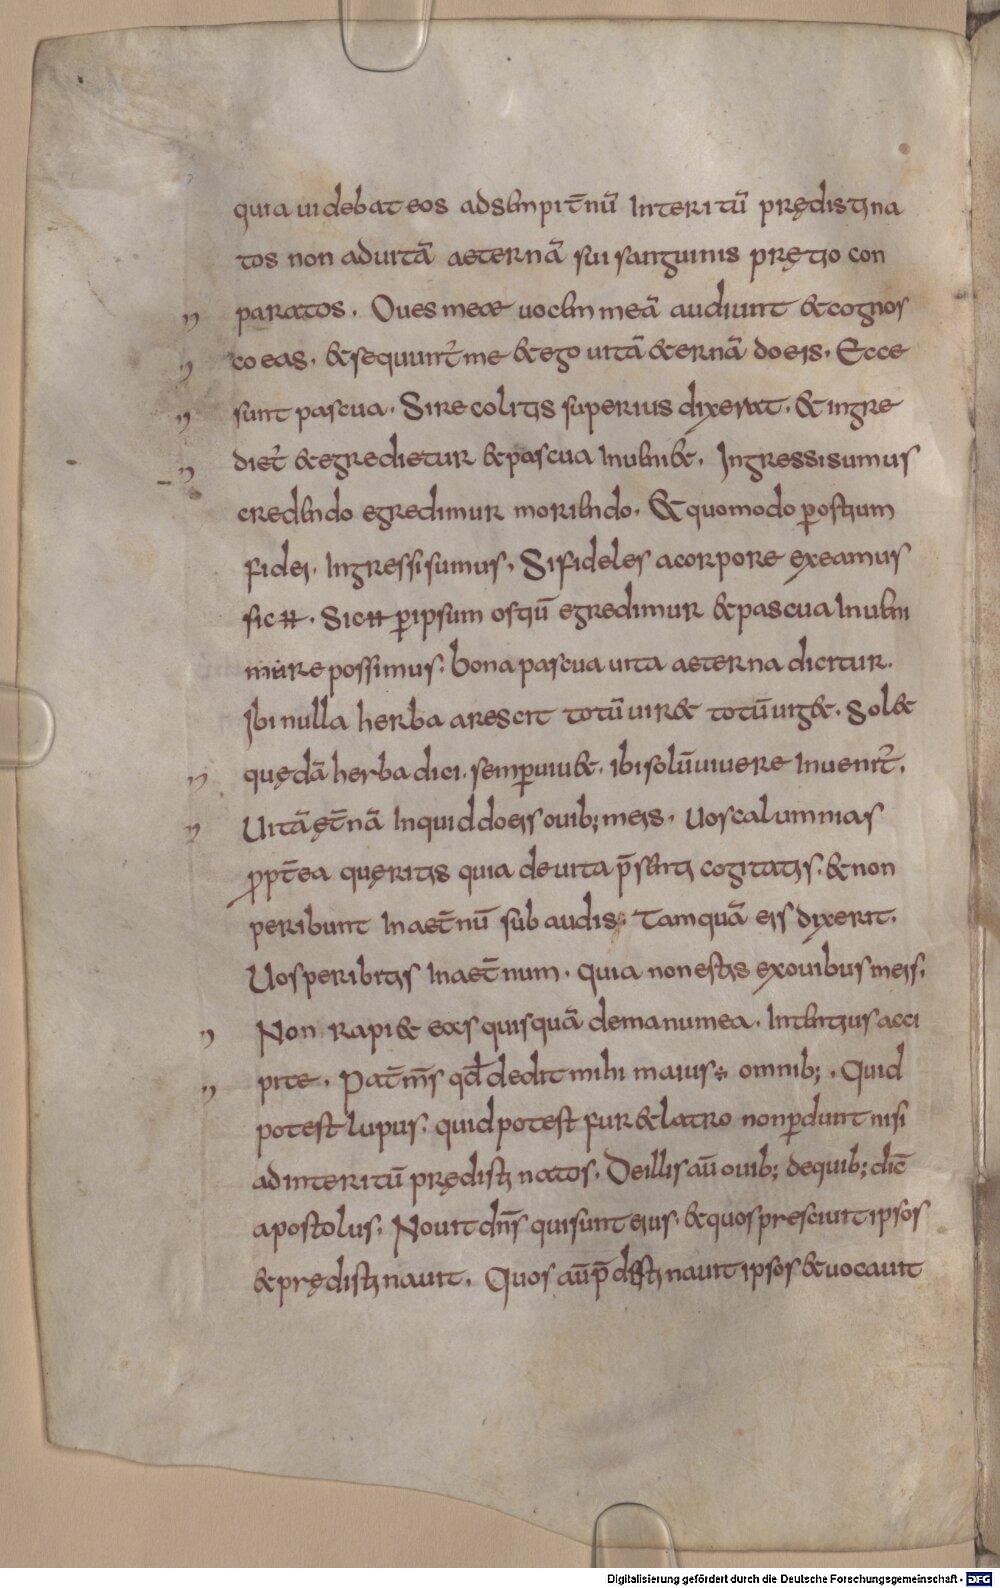 quia uidebat eos ad sempit̄nū interitū prędistina
tos non ad uitā aeternā sui sanguinis prętio con
paratos. Oues meae uocem meā audiunt &cognos
co eas. &sequunt̄ me &ego uitā &ernā do eis. Ecce
sunt pascua. Si recolitis superius dixerat. &ingre
diet̄ &egredietur &pascua inueni&. Ingressi sumus
credendo egredimur moriendo. &quomodo ꝑ ostium
fidei. ingressi sumus. Si fideles a corpore exeamus
sic ⧺. Sic ⧺ ꝑ ipsum ostiū egredimur &pascua inueni
mure possimus. bona pascua uita aeterna dicitur.
Ibi nulla herba arescit totū uir& totū uig&. Sol&
quędā herba dici. semꝑuiu&. ibi solū uiuere inuenit̄.
Uitā ęt̄nā inquid do eis ouib; meis. Uos calumnias
ꝓpt̄ea quęritis quia de uita p̄senti cogitatis. &non
peribunt in aet̄nū subaudis. tamquā eis dixerit.
Uos peribitis in aet̄num. quia non estis ex ouibus meis.
Non rapi& eas quisquā de manu mea. Intentius acci
pite. Pat̄ m̄s qđ dedit mihi maius ÷ omnib;. Quid
potest lupus. quid potest fur &latro non ꝑdunt nisi
ad interitū prędistinatos. De illis aū ouib; de quib; dic̄
apostolus. Nouit dn̄s qui sunt eius. &quos presciuit ipsos
&prędistinauit. Quos aū p̄destinauit ipsos &uocauit
Digitalisierung gefördert durch die Deutsche Forschungsgemeinschaft - DFG